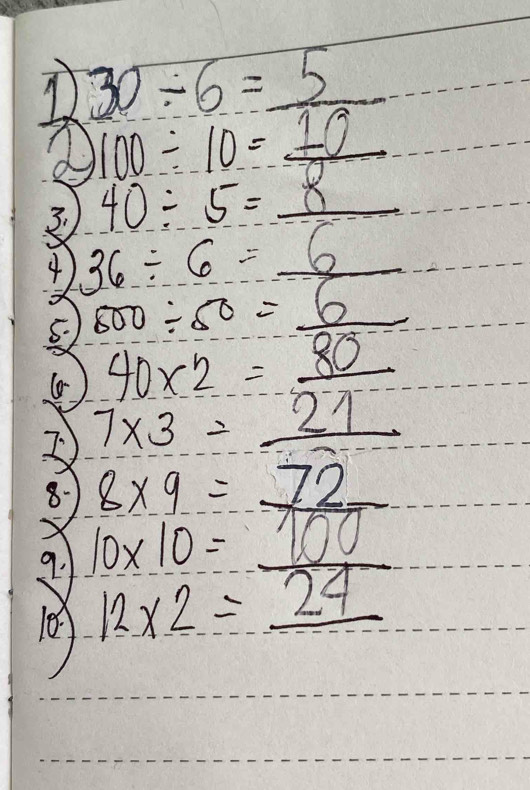 1) 30 ÷ 6 = 5
2) 100 ÷ 10 = 10
3.) 40 ÷ 5 = 8
4) 36 ÷ 6 = 6
5.) 500 ÷ 50 = 6
6.) 40 × 2 = 80
7.) 7 × 3 = 21
8.) 8 × 9 = 72
9.) 10 × 10 = 100
10.) 12 × 2 = 24